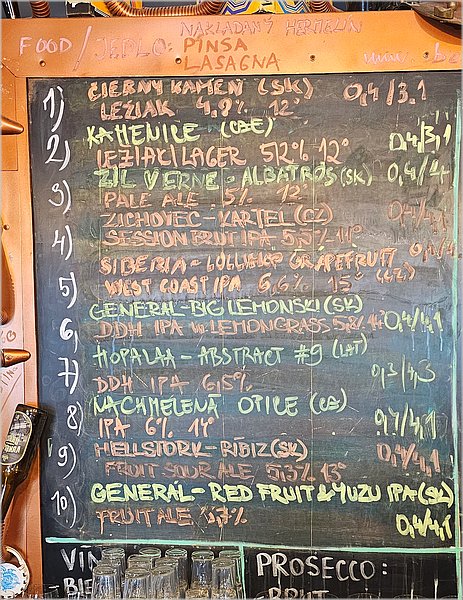 NAKLADANÝ HERMELÍN
FOOD / JEDLO: PINSA
LASAGNA
1) ČIERNY KAMEŇ (SK) 0,4/3.1
LEŽIAK 4,9% 12°
2) KAMENICE (CZE) 0,4/3,1
LEŽIAK/LAGER 5,2% 12°
3) ZIL VERNE - ALBATROS (SK) 0,4/4.1
PALE ALE, 5% 12°
4) ZICHOVEC - KARTEL (CZ) 0,4/4,1
SESSION FRUIT IPA 5,5% 11°
5) SIBERIA - LOLLIHOP GRAPEFRUIT 0,4/4,1
WEST COAST IPA 6,6% 15° (CZ)
6) GENERAL - BIG LEMONSKI (SK)
DDH IPA W LEMONGRASS 0,4/4,1
7) HOPALAA - ABSTRACT #9 (LAT)
DDH IPA 6,5% 0,3/4,3
8) NACHMELENÁ OPICE (CZ)
IPA 6% 14° 0,4/4.1
9) HELLSTORK - RÍBIZ (SK) 0,4/4,1
FRUIT SOUR ALE 5,3% 13°
10) GENERÁL - RED FRUIT & YUZU IPA (SK)
FRUIT ALE 5,7% 0,4/4,1
VÍN
- BIE
PROSECCO:
- BRUT